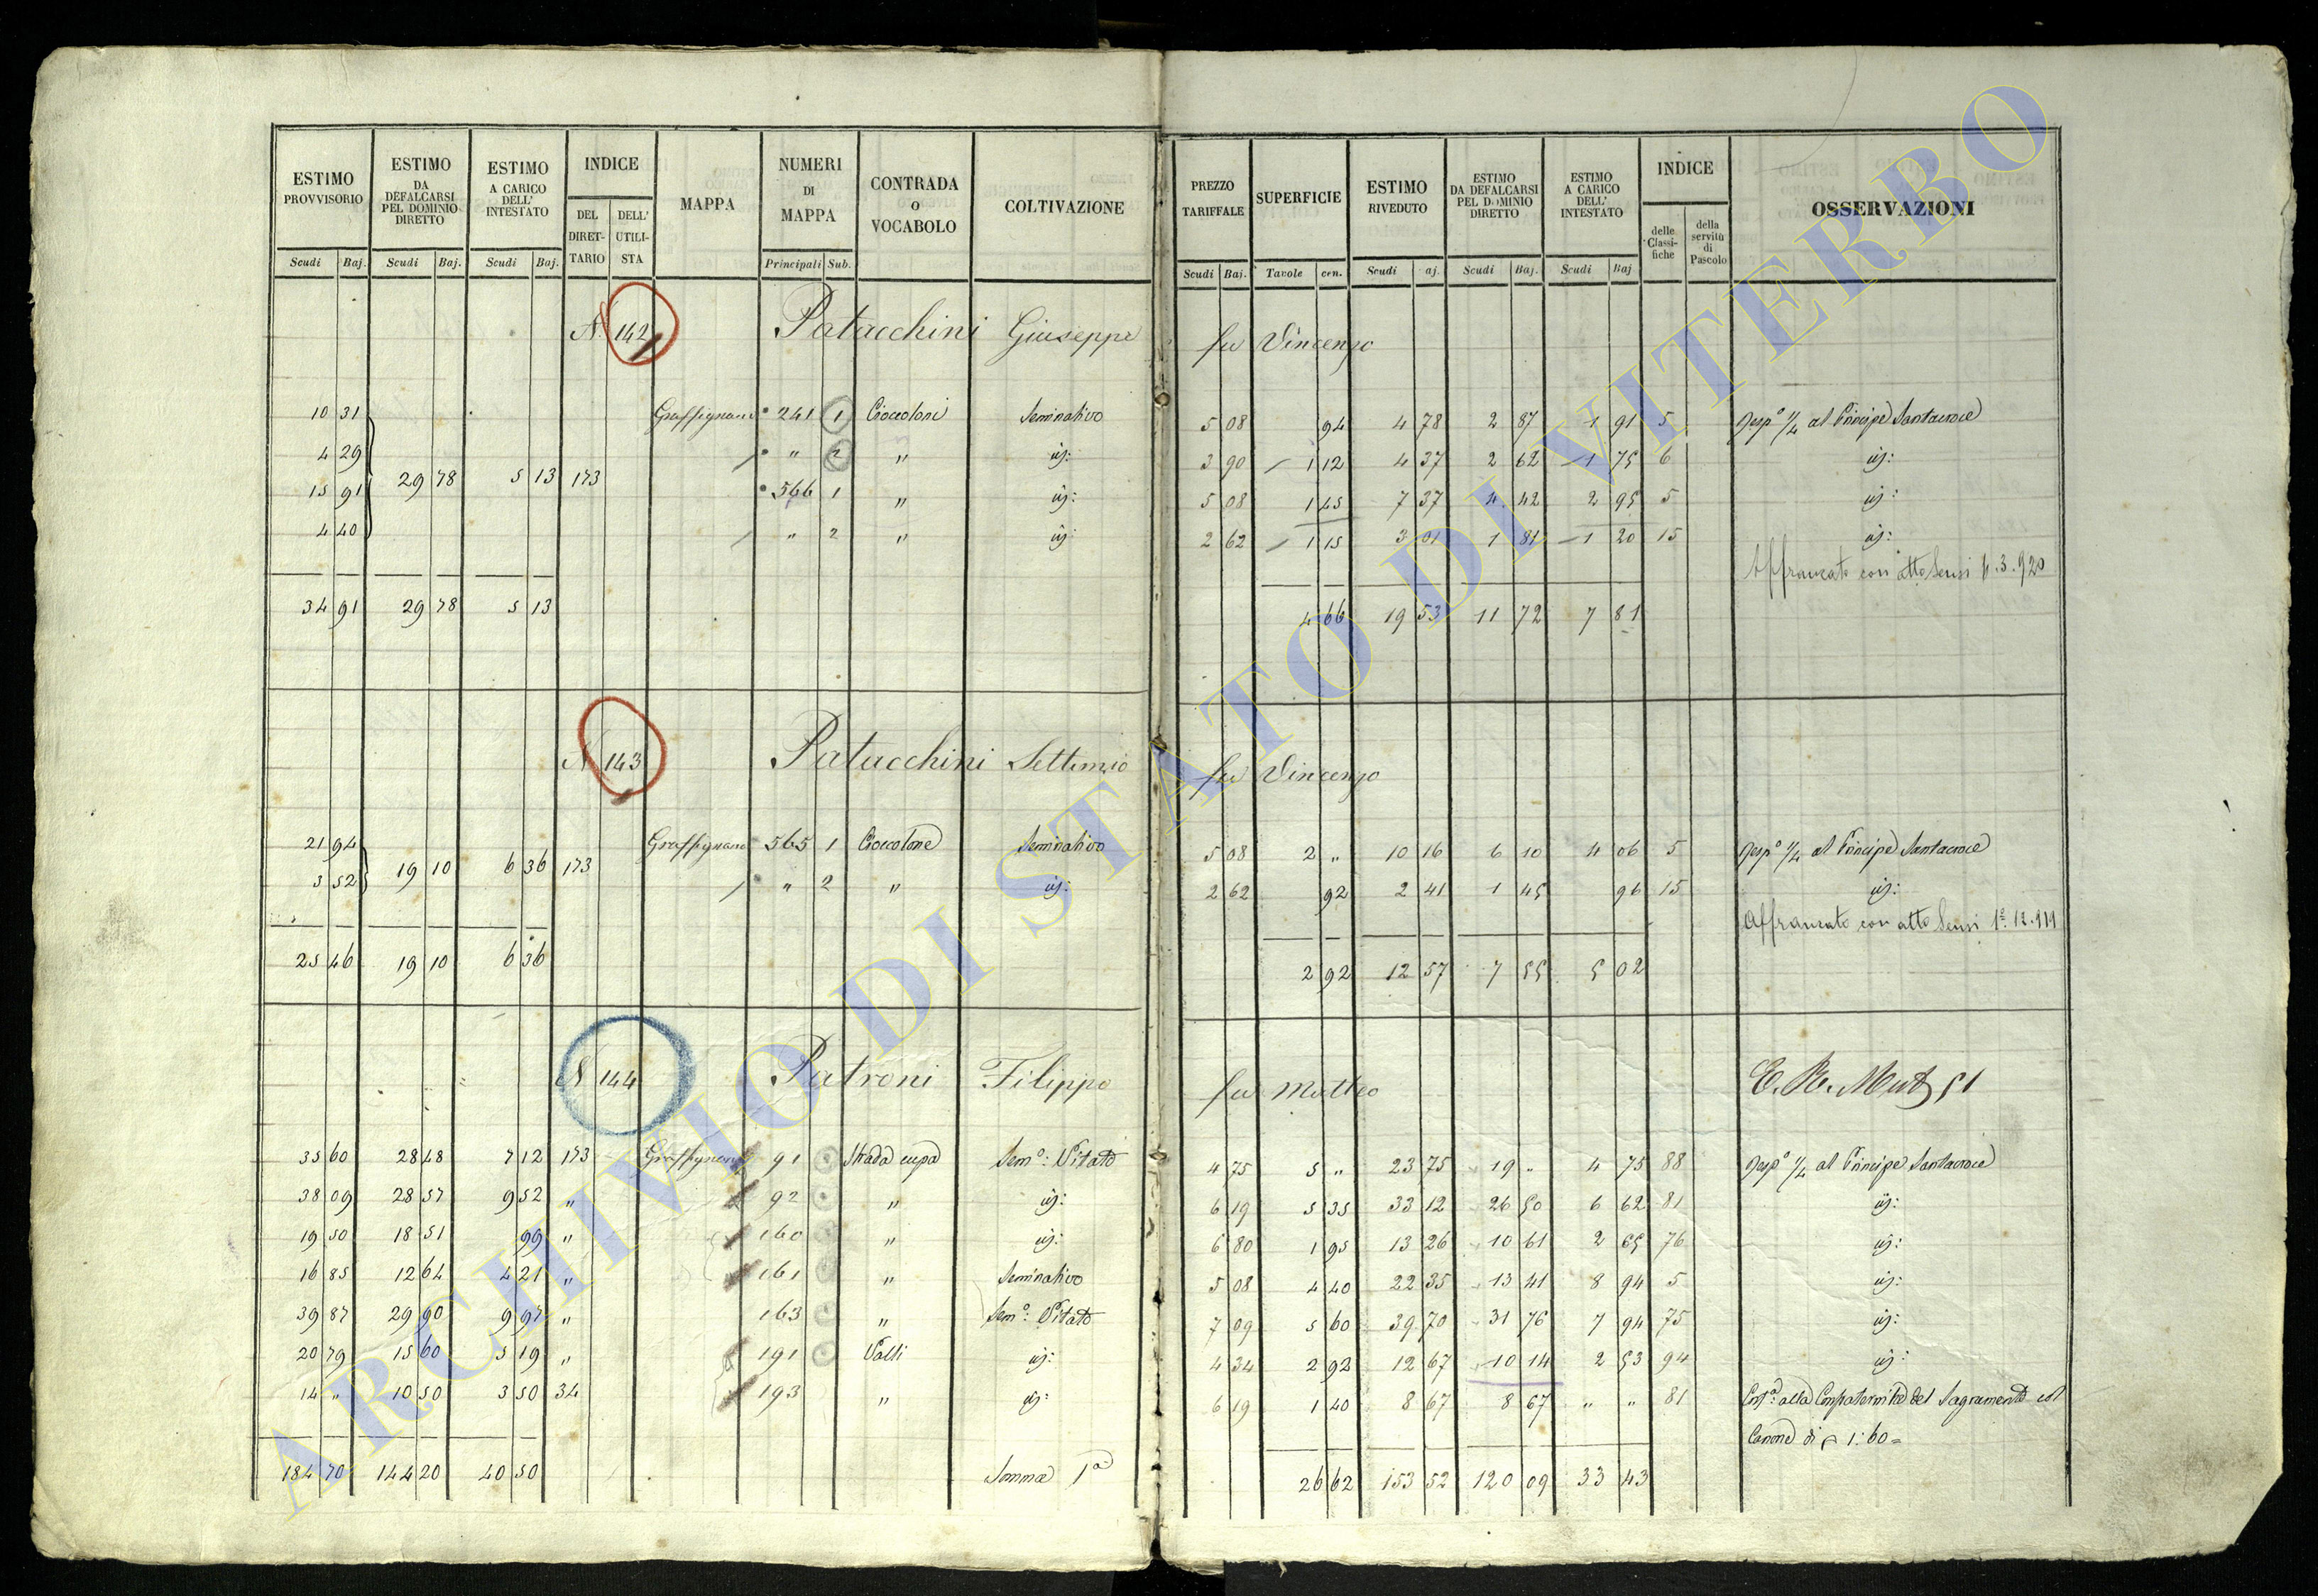 ESTIMO PROVVISORIO ESTIMO DA DEFALCARSI PEL DOMINIO DIRETTO ESTIMO A CARICO DELL' INTESTATO INDICE MAPPA NUMERI DI MAPPA CONTRADA O VOCABOLO COLTIVAZIONE PREZZO TARIFFALE SUPERFICIE ESTIMO RIVEDUTO ESTIMO DA DEFALCARSI PEL DOMINIO DIRETTO ESTIMO A CARICO DELL' INTESTATO INDICE OSSERVAZIONI
DEL DIRETTARIO DELL' UTILISTA delle Classifiche della servitù di Pascolo
Scudi Baj. Scudi Baj. Scudi Baj. Principali Sub. Scudi Baj. Tavole cen. Scudi aj. Scudi Baj. Scudi Baj
N. 142 Patacchini Giuseppe fu Vincenzo
10 31 Graffignano 241 1 Cioccoloni Seminativo 5 08 94 4 78 2 87 1 91 5 Resp° 1/4 al Principe Santacroce
4 29 " 2 " id: 3 90 1 12 4 37 2 62 1 75 6 id:
29 78 5 13 173
15 91 566 1 " id: 5 08 1 45 7 37 4 42 2 95 5 id:
4 40 " 2 " id: 2 62 1 15 3 01 1 81 1 20 15 id:
Affrancato con atto Sensi
34 91 29 78 5 13 4 66 19 53 11 72 7 81
N 143 Patacchini Settimio fu Vincenzo
21 94 Graffignano 565 1 Cioccolone Seminativo 5 08 2 " 10 16 6 10 4 06 5 Resp° 1/4 al Principe Santacroce
19 10 6 36 173
3 52 " 2 " id: 2 62 92 2 41 1 45 96 15 id:
Affrancato con atto Sensi
25 46 19 10 6 36 2 92 12 57 7 55 5 02
N 144 Patroni Filippo fu Matteo
35 60 28 48 7 12 173 Graffignano 91 Strada cupa Sem°: Vitato 4 75 5 " 23 75 19 " 4 75 88 Resp° 1/4 al Principe Santacroce
38 09 28 57 9 52 " 92 " id: 6 19 5 35 33 12 26 50 6 62 81 id:
19 50 18 51 99 " 160 " id: 6 80 1 95 13 26 10 61 2 65 76 id:
16 85 12 64 4 21 " 161 " Seminativo 5 08 4 40 22 35 13 41 8 94 5 id:
39 87 29 90 9 97 " 163 " Sem°: Vitato 7 09 5 60 39 70 31 76 7 94 75 id:
20 79 15 60 5 19 " 191 Valli id: 4 34 2 92 12 67 10 14 2 53 94 id:
14 " 10 50 3 50 34 193 " id: 6 19 1 40 8 67 8 67 " " 81 alla Confraternita del Sagramento col
Canone di 1:60=
184 70 144 20 40 50 Somma 1a 26 62 153 52 120 09 33 43
ARCHIVIO DI STATO DI VITERBO